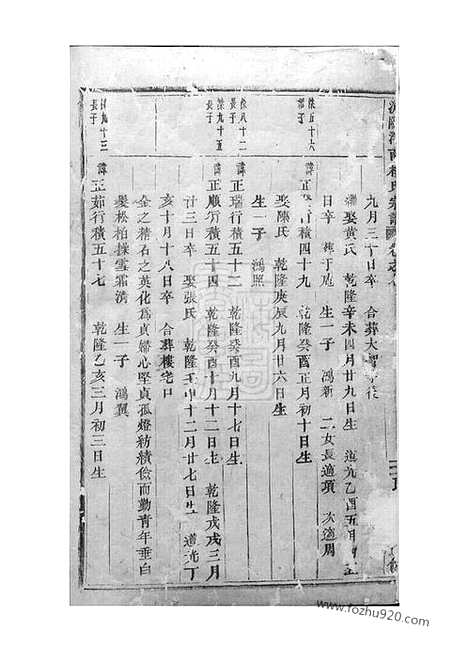 九月三十日卒 合葬大
娶黄氏 乾隆辛未四月廿九日生 道光乙酉五月
日辛 生一子 鴻新 二女長適項 次適周
侏五十六
子
諱正 行積四十九 乾隆癸酉正月初十日生
娶陳氏 乾隆庚辰九月廿六日生
生一子 鴻照
侏八十二
長子
諱正瑞行積五十二 乾隆癸酉九月十七日生
侏九十五
長子
諱正順行積五十四 乾隆癸酉十月十二日生 乾隆戊戌三月
廿三日卒 娶張氏 乾隆 十二月廿七日生 道光丁
亥十月十八日卒 合葬樓宅口
金之精石之英化爲貞婦心堅貞孤燈紡績儉而勤青年垂白
髮松柏操雪霜清 生一子 鴻翼
九十三
長子
諱正茹行積五十七 乾隆乙亥三月初三日生
www.fozhu920.com